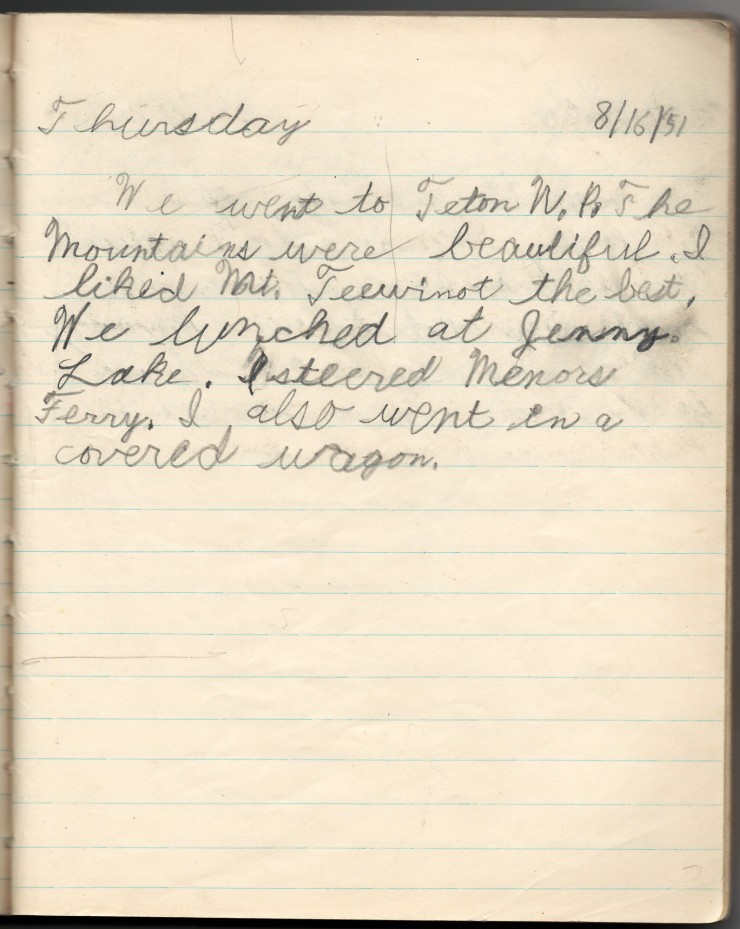 Thursday 8/16/51
We went to Teton N. P. The
Mountains were beautiful. I
liked Mt. Teewinot the best.
We lunched at Jenny
Lake. I steered Menors
Ferry. I also went in a
covered wagon.